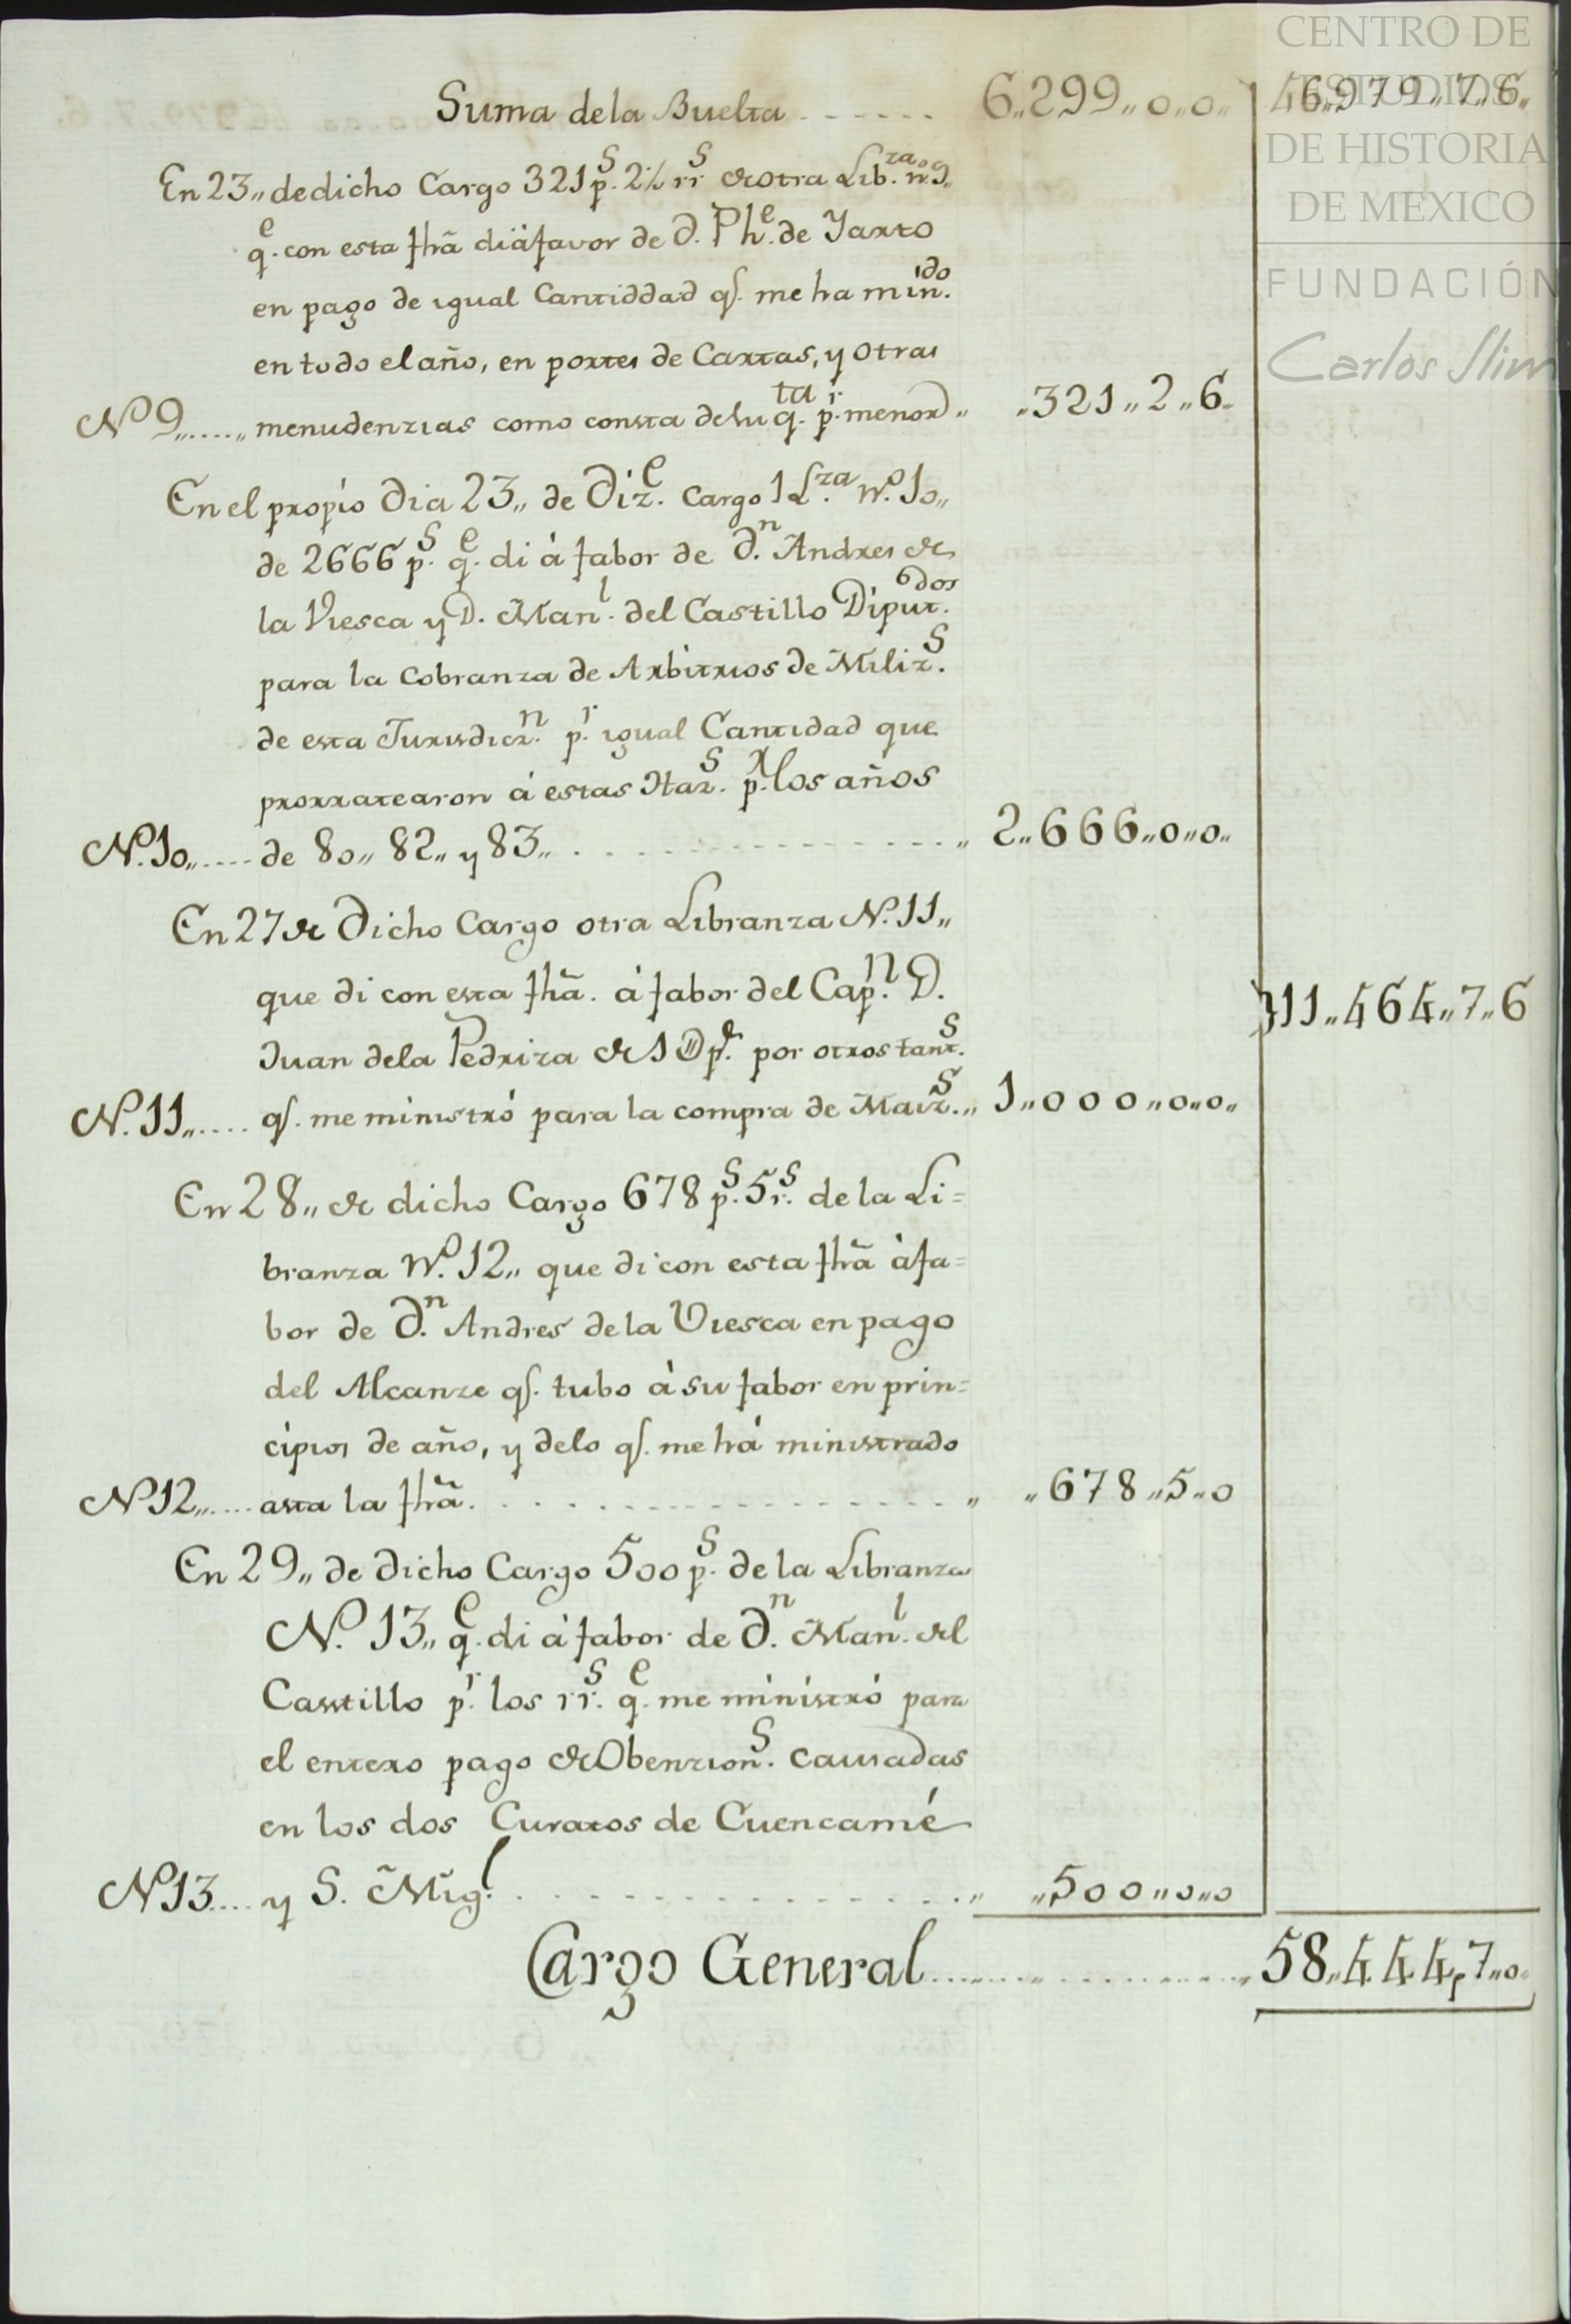 CENTRO DE
ESTUDIOS
DE HISTORIA
DE MEXICO
FUNDACIÓN
Carlos Slim
Suma dela Buelta ...... 6,,299,,0,,0,, 46,,979,,7,,6,,
En 23,, de dicho Cargo 321 p.s 2½ rr.s de otra Lib.za n.o 9.
q.e con esta fhã di à favor de D. Ph.e de Yarto
en pago de igual Cantiddad q.e me ha min.do
en todo el año, en portes de Cartas, y otras
No 9,,....,, menudenzias como consta de su q.ta p.r menor ,, ,,321,,2,,6,,
En el propio Dia 23,, de Diz.e Cargo 1 L.za N.o 10,,
de 2666 p.s q.e di à fabor de D.n Andres de
la Viesca y D. Man.l del Castillo Diput.dos
para la Cobranza de Arbitrios de Miliz.s
de esta Jurisdicz.n p.r igual Cantidad que
prorratearon á estas Haz.s p.r los años
N.o 10,,.... de 80,, 82,, y 83,, .......... ,, 2,,666,,0,,0,,
En 27 de Dicho Cargo otra Libranza N.o 11,,
que di con esta fhã. à fabor del Cap.n D.
Juan dela Pedriza de 1 @ p.s por otros tant.s
N.o 11,,.... q.e me ministró para la compra de Maiz.s ..,, 1,,000,,0,,0,,
11,,464,,7,,6
En 28,, de dicho Cargo 678 p.s 5 r.s de la Li=
branza N.o 12,, que di con esta fhã à fa=
bor de D.n Andres de la Viesca en pago
del Alcanze q.e tubo à su fabor en prin=
cipios de año, y delo q.e me há ministrado
No 12,,.... asta la fhã. .......... ,, ,,678,,5,,0
En 29,, de dicho Cargo 500 p.s de la Libranza
N.o 13,, q.e di à fabor de D.n Man.l del
Casstillo p.r los rr.s q.e me ministró para
el entero pago de Obenzion.s causadas
en los dos Curatos de Cuencamé
No 13.... y S. Mig.l .......... ,, ,,500,,0,,0
Cargo General .......... 58,,444,,7,,0,,